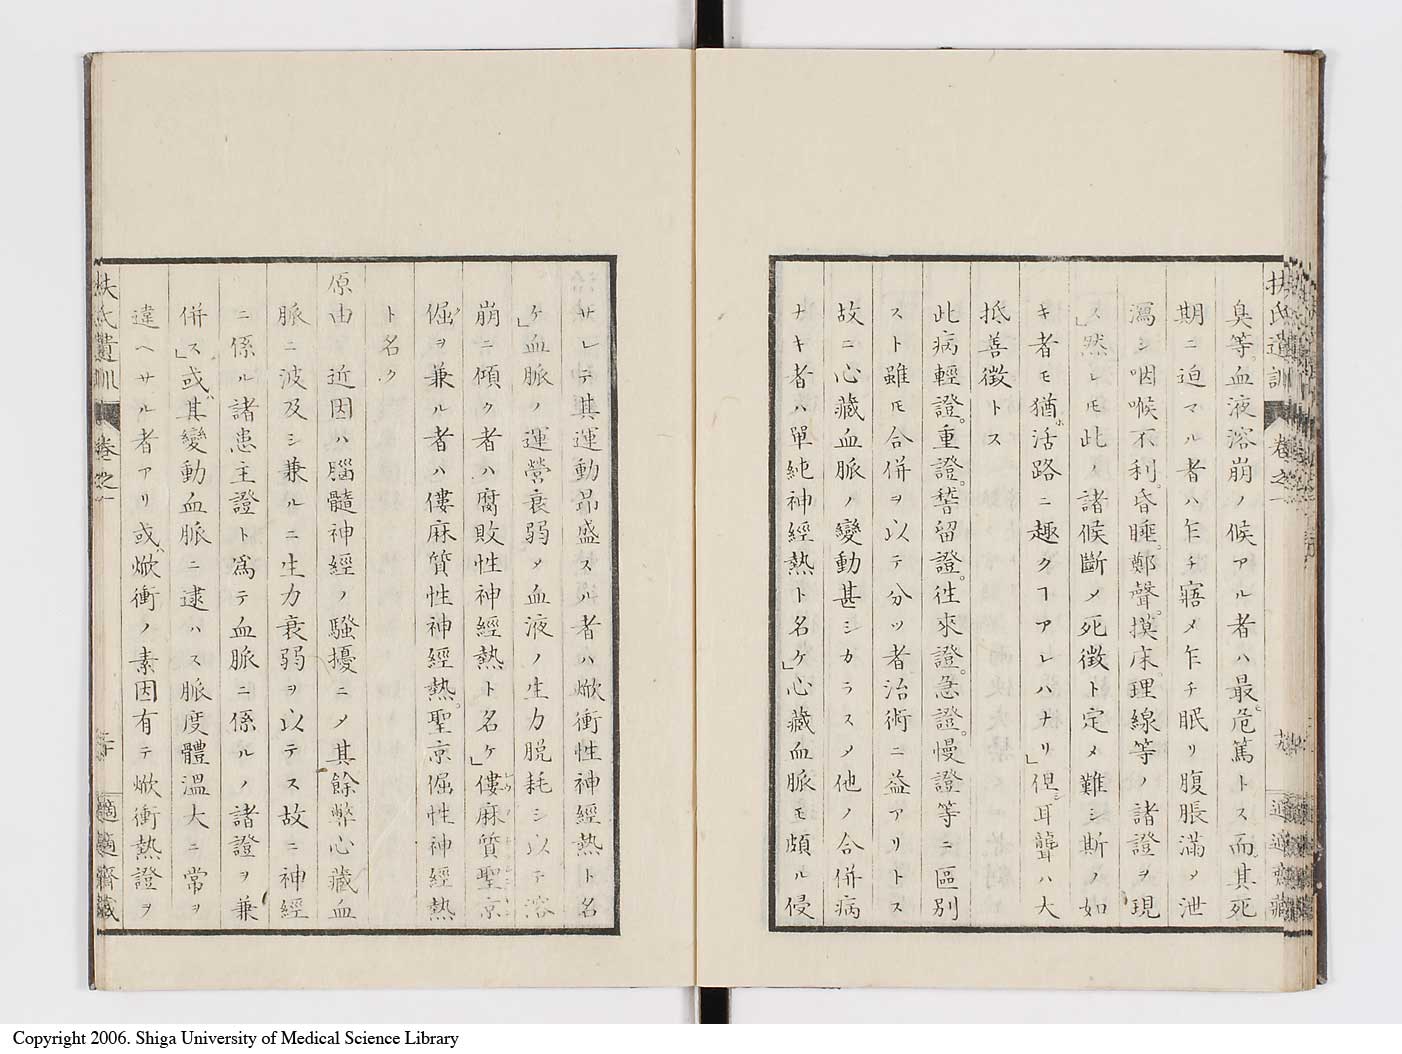 扶氏遺訓 卷之一
臭等。血液溶崩ノ候アル者ハ最。危篤トス而。其死
期ニ迫マル者ハ乍チ寤メ乍チ眠リ腹脹滿メ泄
瀉シ咽喉不利。昏睡。鄭聲。摸床。理線等ノ諸證ヲ現
ス」然レモ此ノ諸候斷メ死徴ト定メ難シ斯ノ如
キ者モ猶活路ニ趣クヿアレハナリ」但シ耳聾ハ大
抵善徴トス
此病輕證。重證。稽留證。徃來證。急證。慢證等ニ區別
スト雖モ合併ヲ以テ分ツ者治術ニ益アリトス
故ニ心藏血脈ノ變動甚シカラスメ他ノ合併病
ナキ者ハ單純神經熱ト名ケ」心藏血脈モ頗ル侵
サレテ其運動昂盛スル者ハ焮衝性神經熱ト名
ケ」血脈ノ運營衰弱メ血液ノ生力脱耗シ以テ溶
崩ニ傾ク者ハ腐敗性神經熱ト名ケ」僂麻質聖京
倔ヲ兼ル者ハ僂麻質性神經熱。聖京倔性神經熱
ト名ク
原由 近因ハ腦髓神經ノ騷擾ニメ其餘弊心藏血
脈ニ波及シ兼ルニ生力衰弱ヲ以テス故ニ神經
ニ係ル諸患主證ト爲テ血脈ニ係ルノ諸證ヲ兼
併ス」或ハ其變動血脈ニ逮ハス脈度體溫大ニ常ヲ
違ヘサル者アリ或ハ焮衝ノ素因有テ焮衝熱證ヲ
扶氏遺訓 卷之一 二十 適適齋藏
Copyright 2006. Shiga University of Medical Science Library